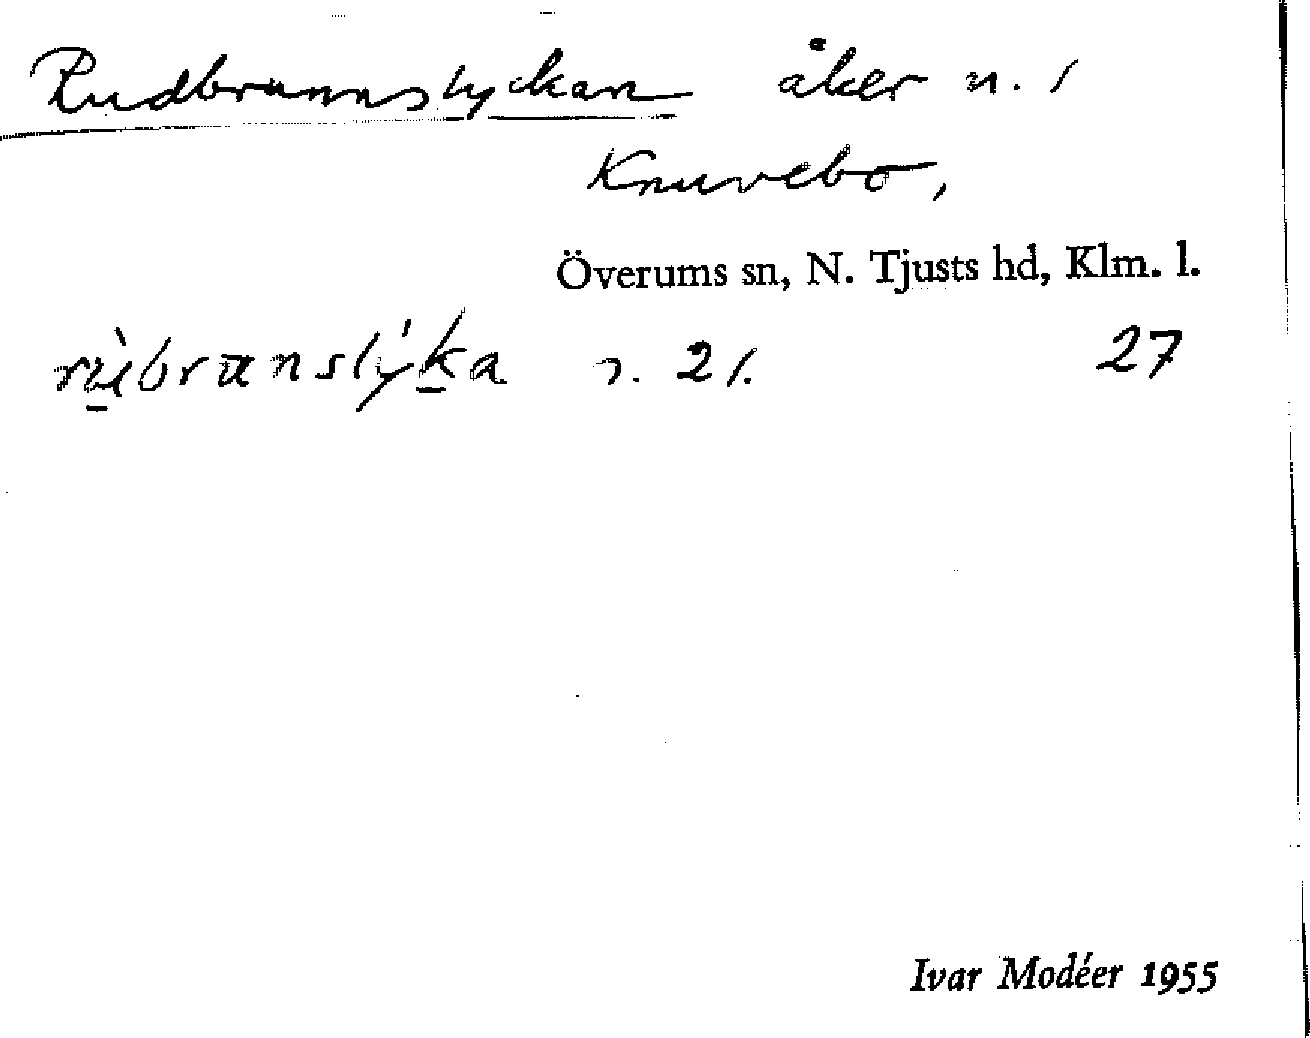 Rudbrunnslyckan åker n. 1
Knuvebo,
Överums sn, N. Tjusts hd, Klm. l.
rùbrunslýka n. 21. 27
Ivar Modéer 1955